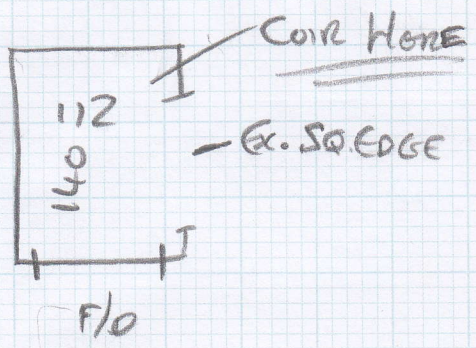 COIR HERE
112
140
EX. SQ. EDGE
F/O